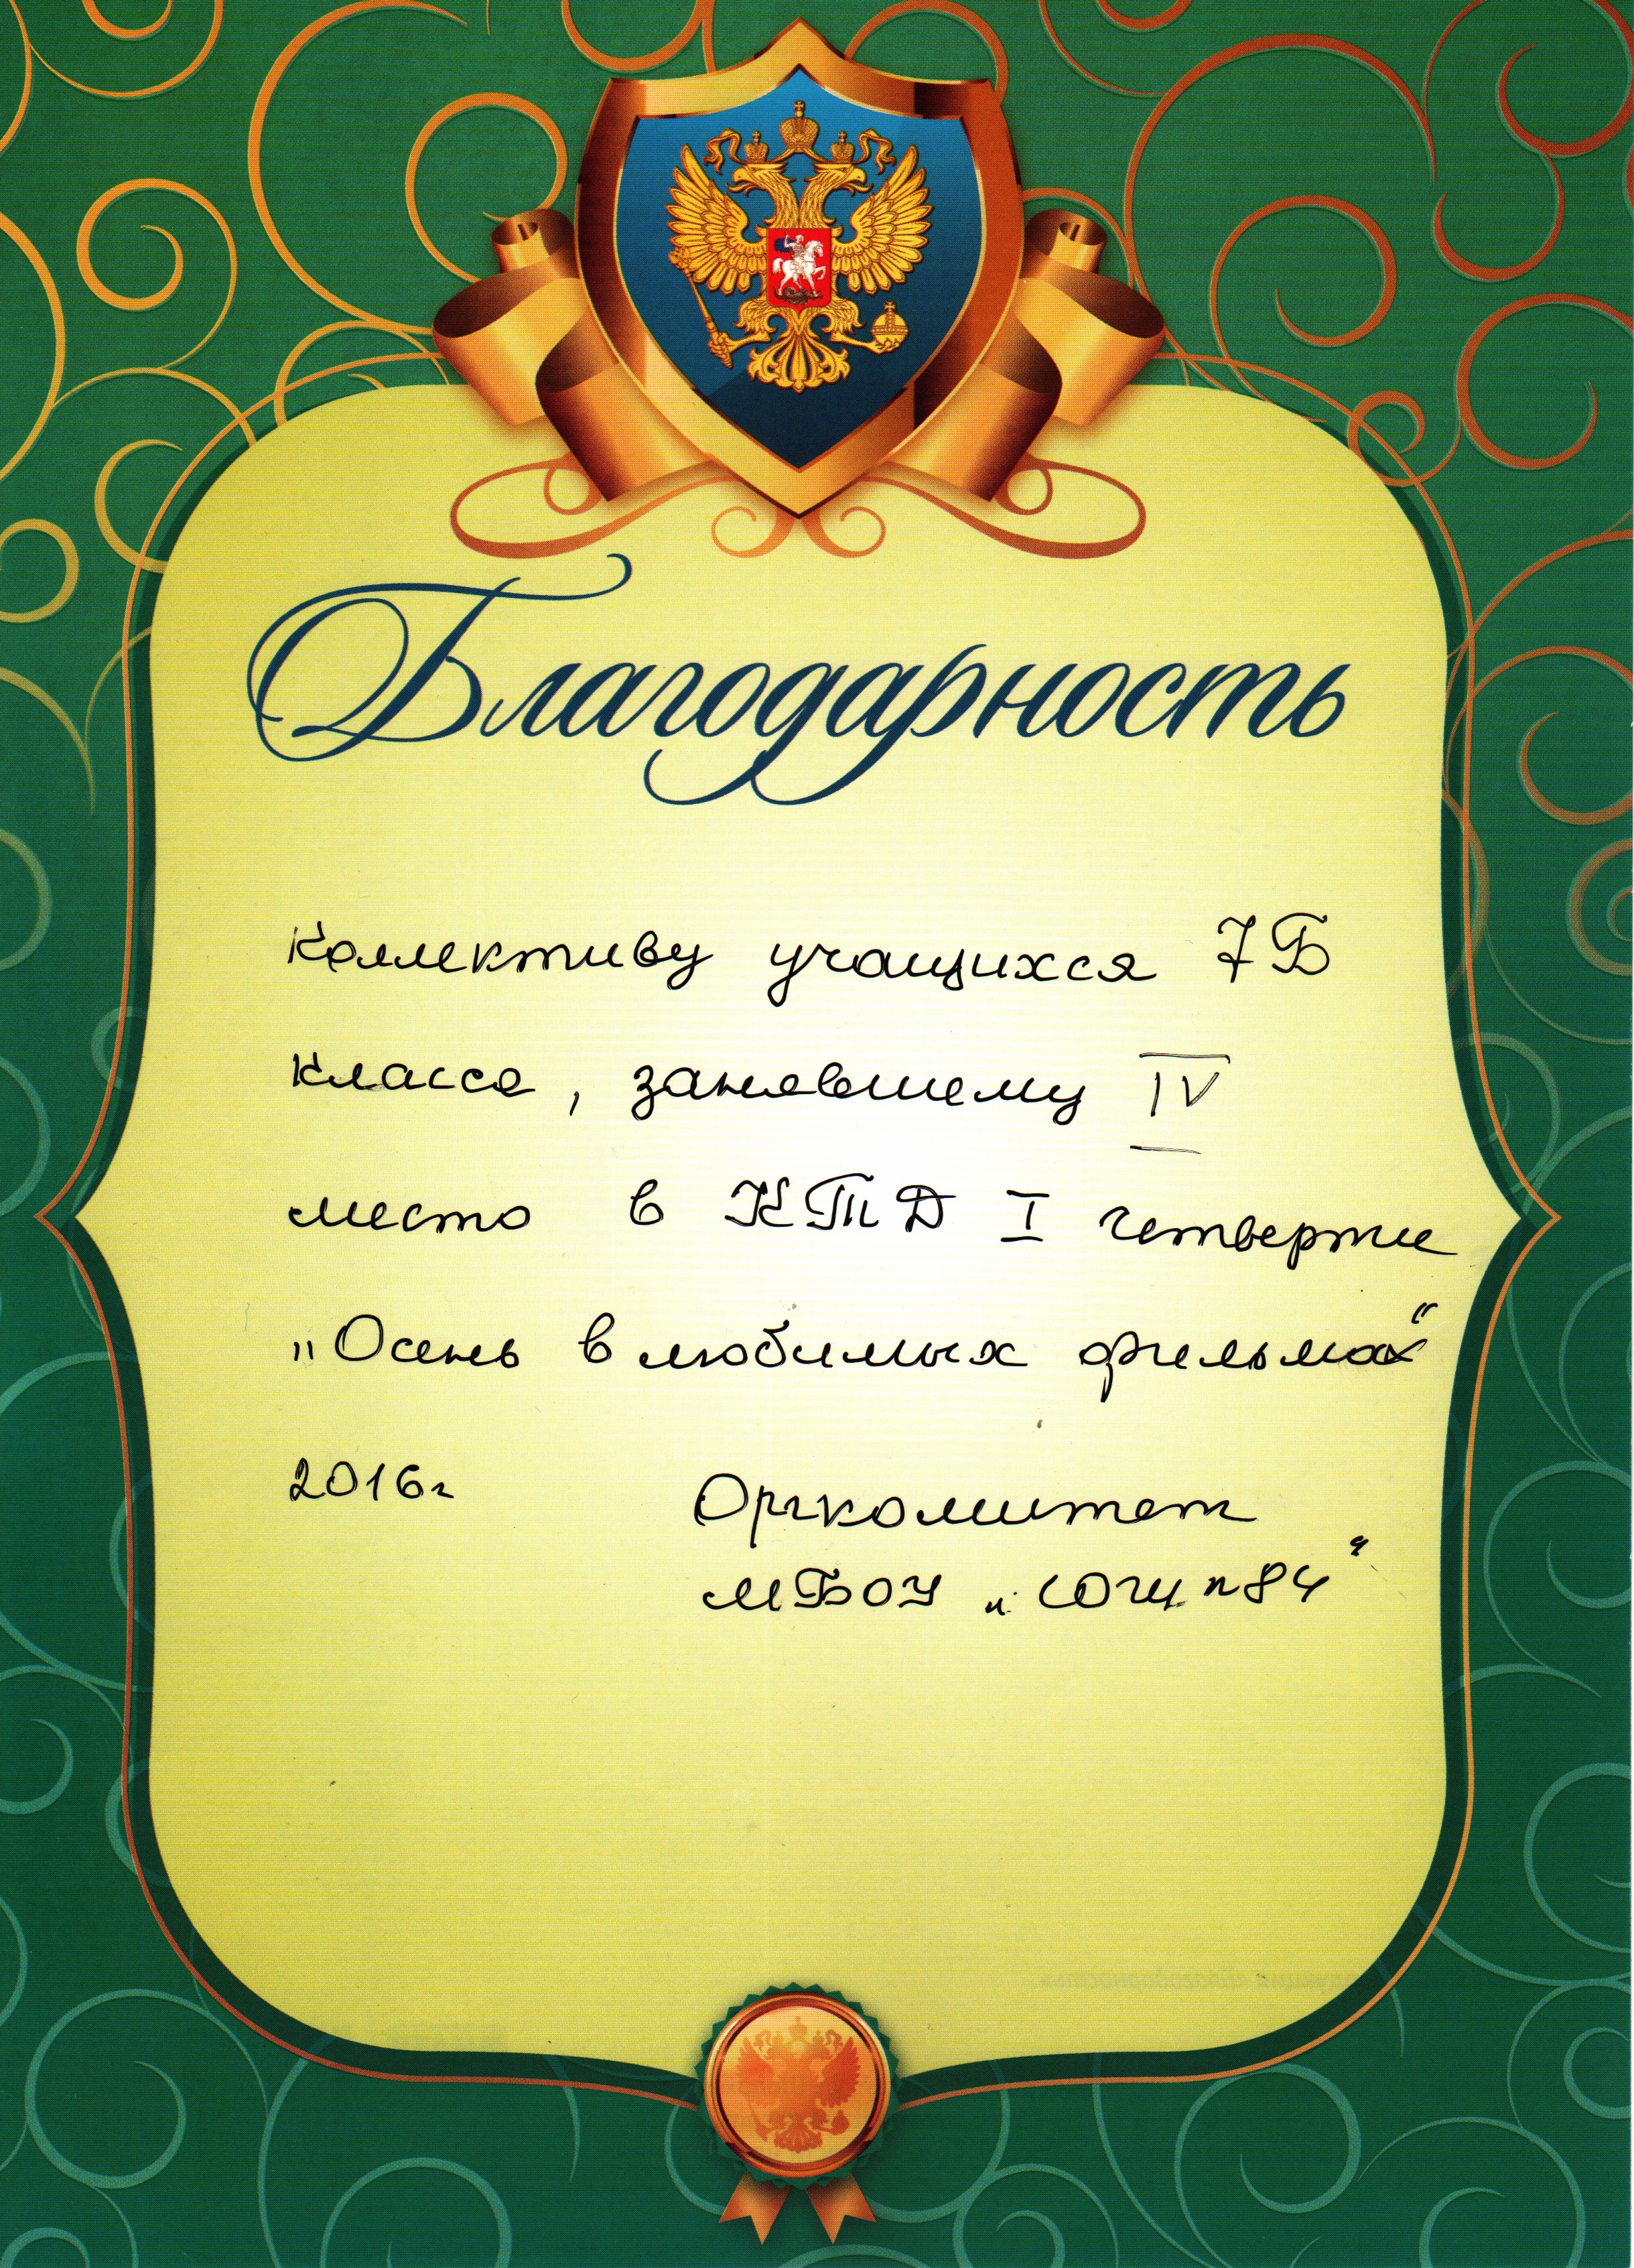 Благодарность
Коллективу учащихся 7Б
класса, занявшему IV
место в КТД I четверти
„Осень в любимых фильмах“
2016г
Оргкомитет
МБОУ „СОШ №84“